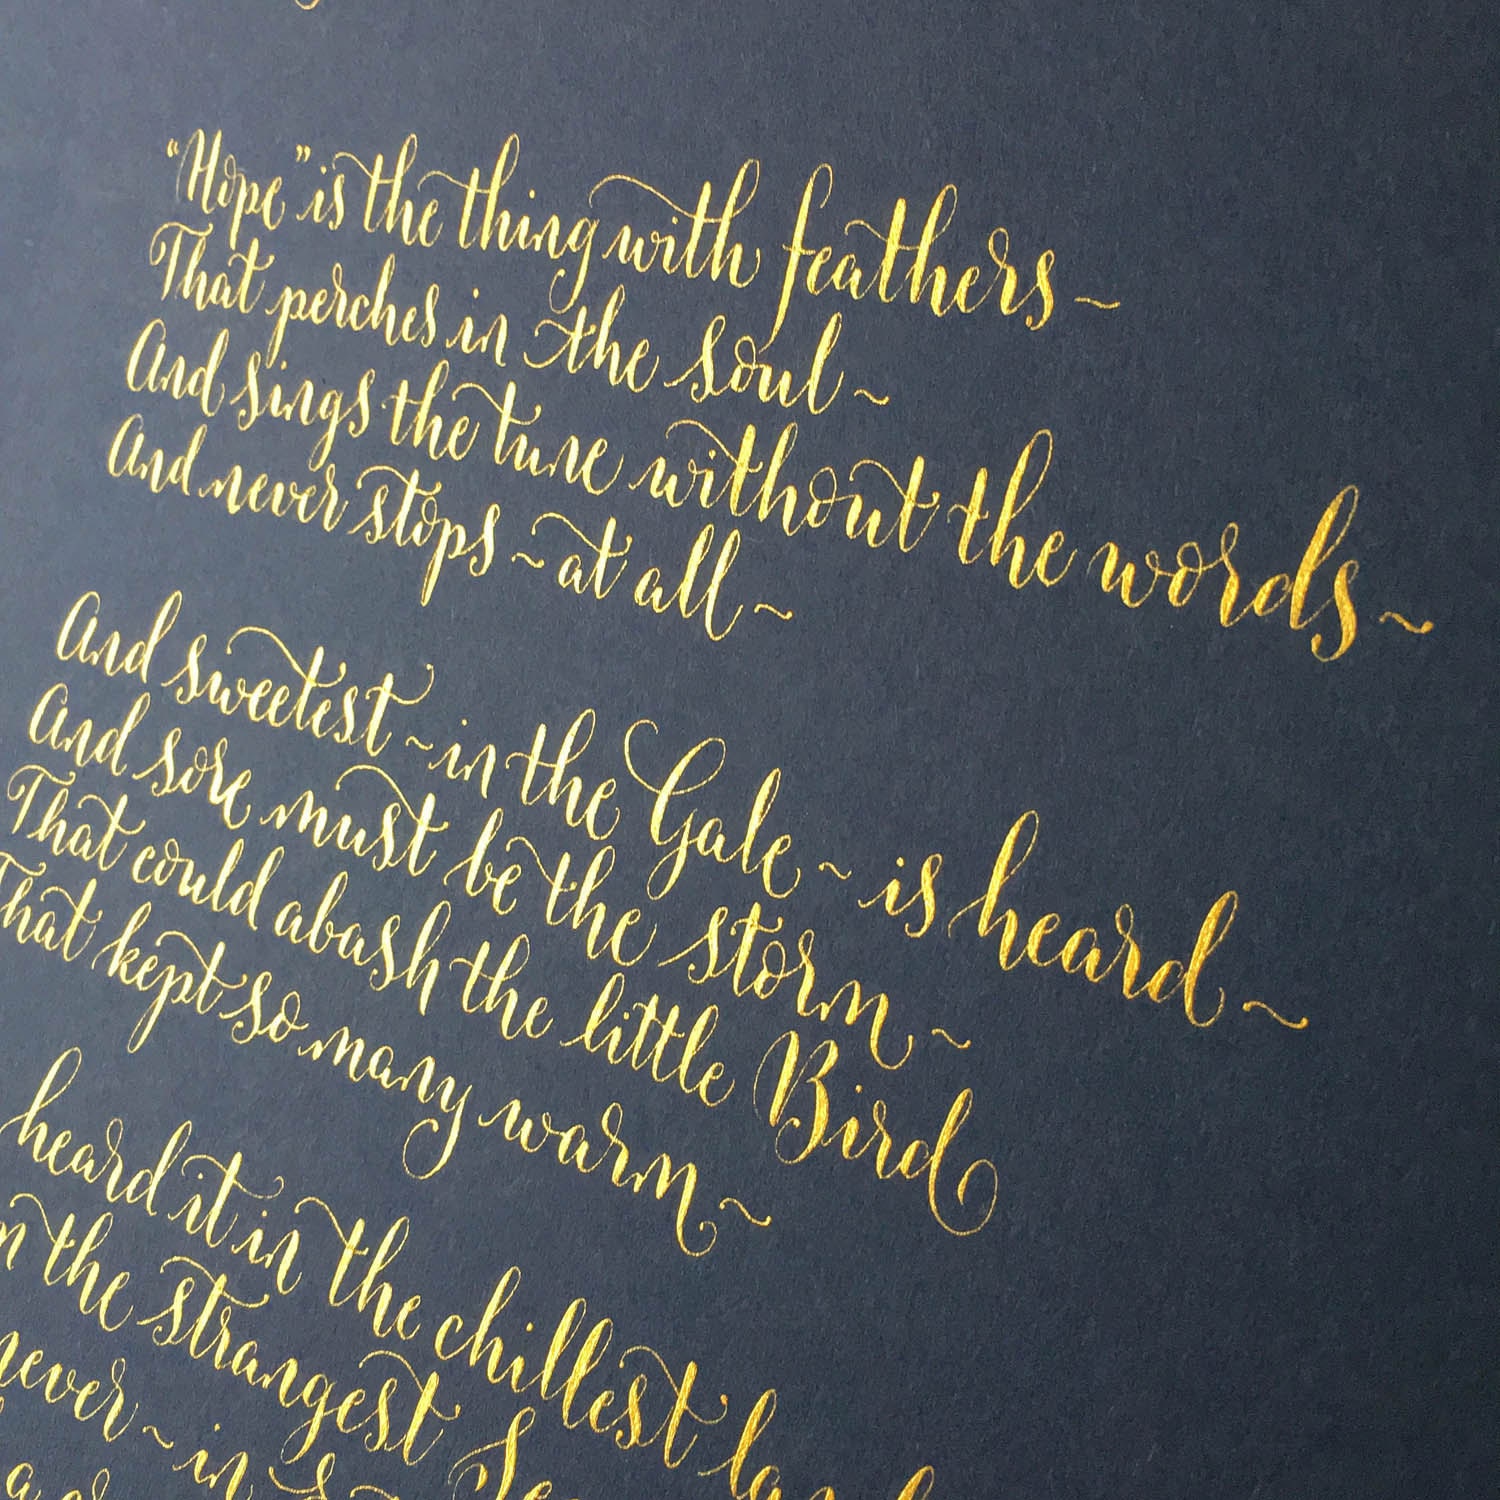 "Hope" is the thing with feathers ~
That perches in the soul ~
And sings the tune without the words ~
And never stops ~ at all ~
And sweetest ~ in the Gale ~ is heard ~
And sore must be the storm ~
That could abash the little Bird
That kept so many warm ~
heard it in the chillest
the strangest
never ~ in